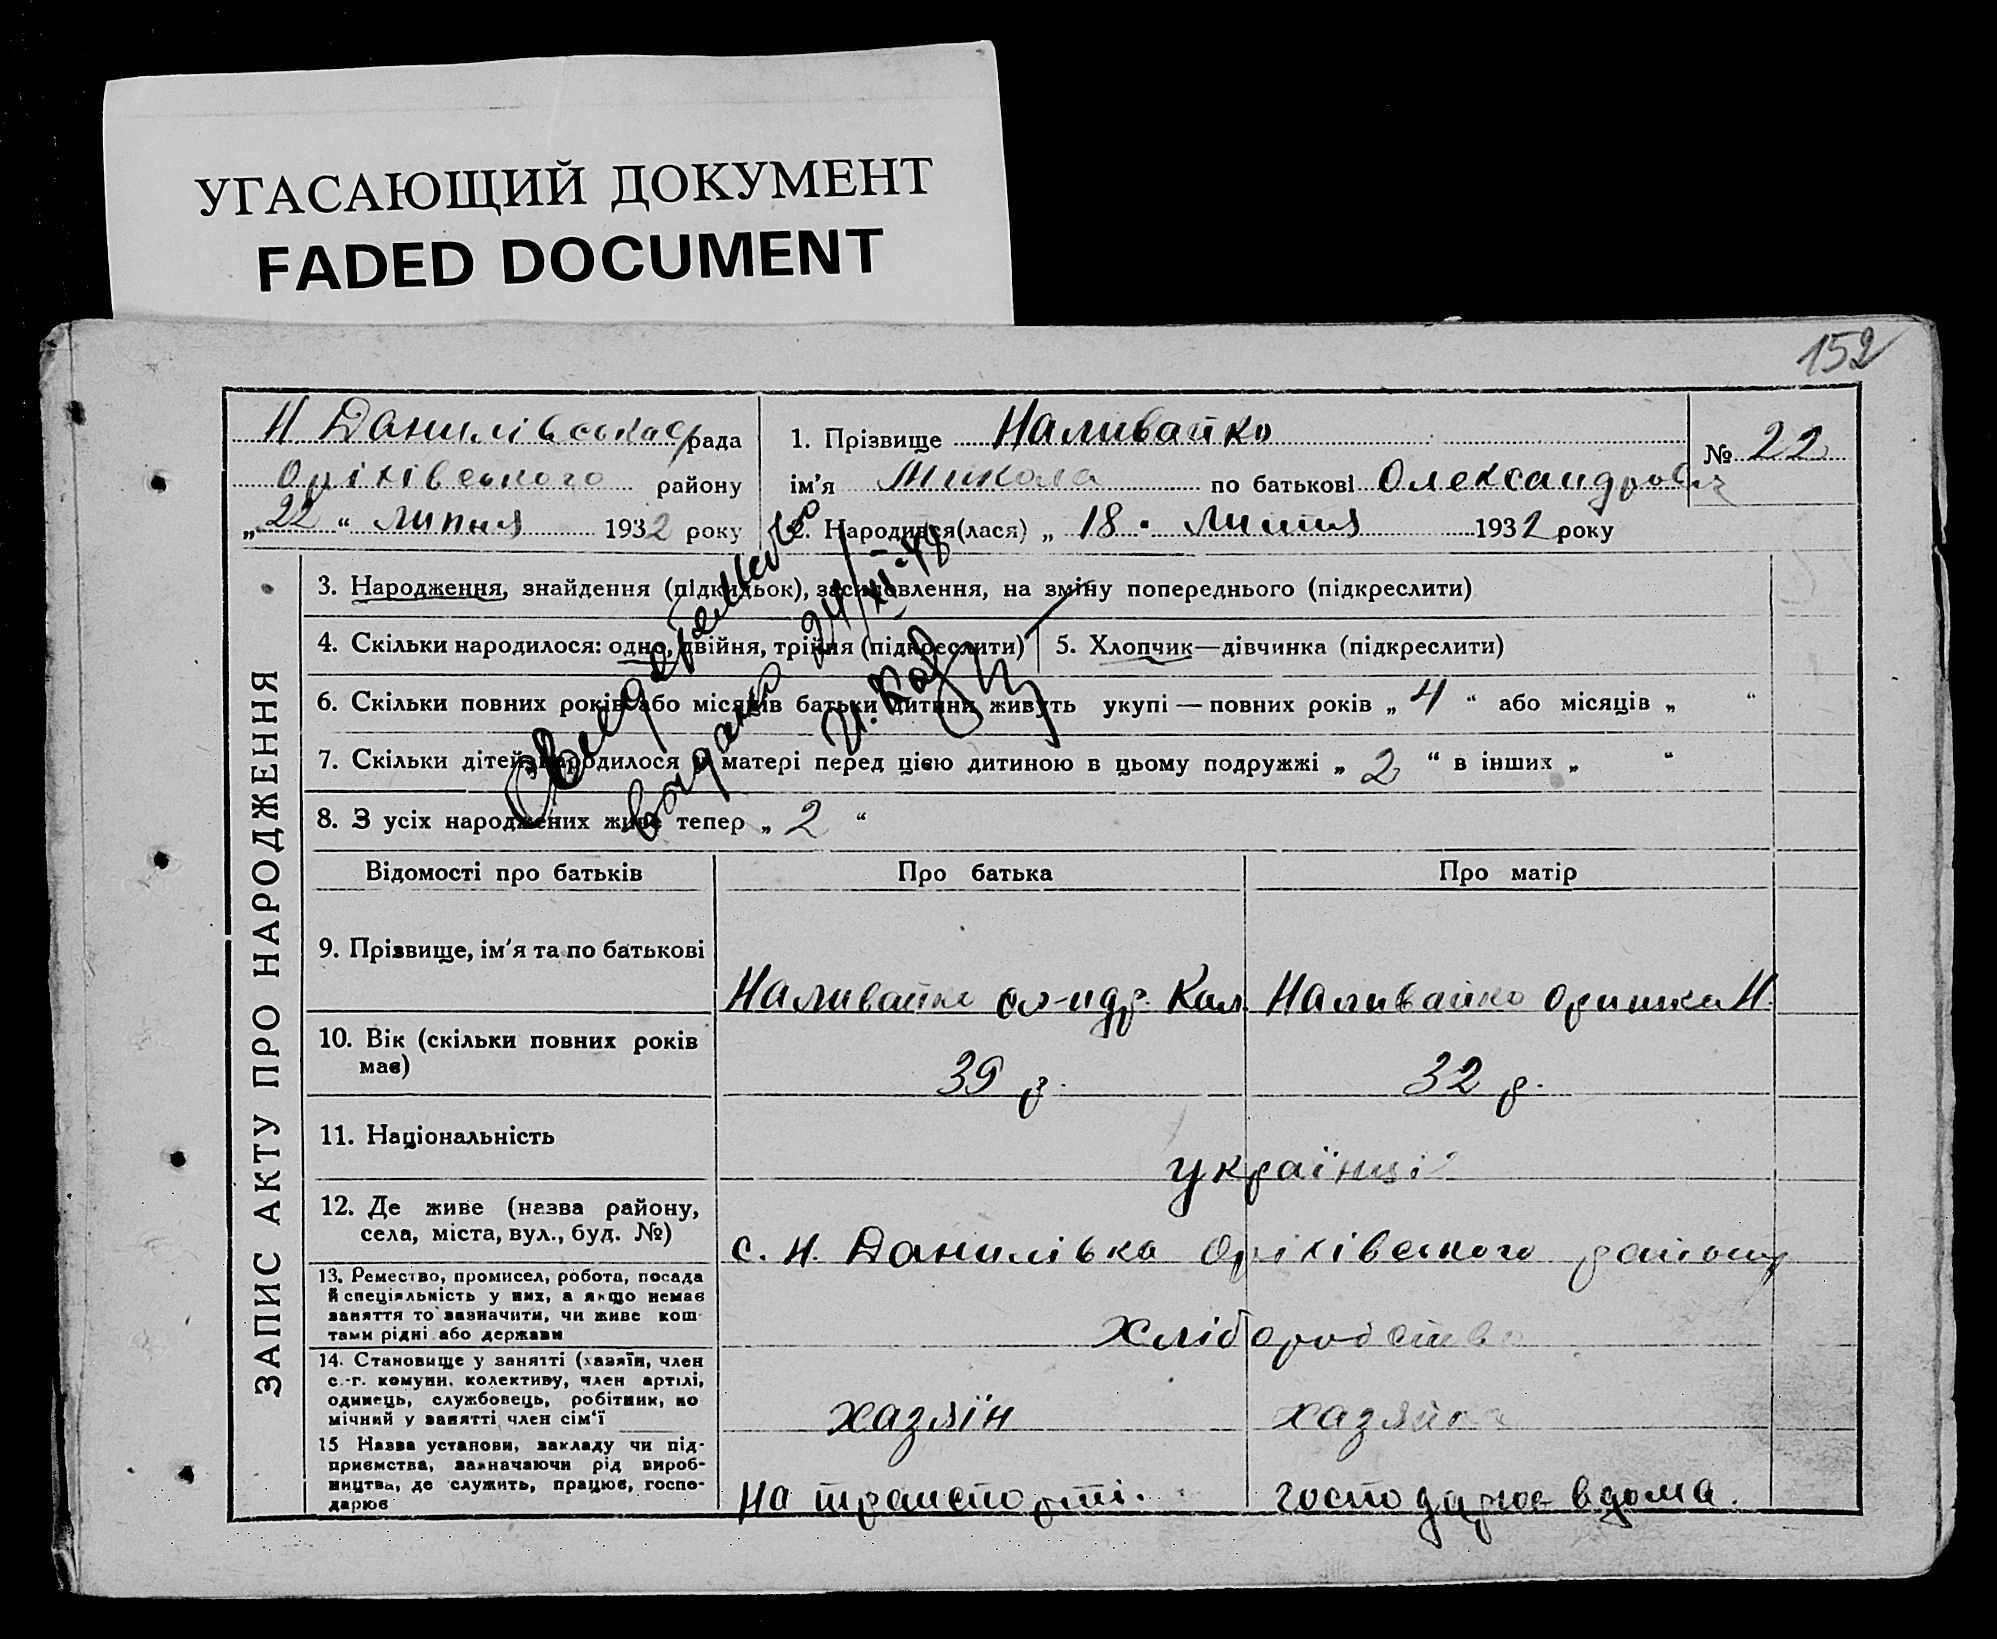 УГАСАЮЩИЙ ДОКУМЕНТ
FADED DOCUMENT
152
Н Данилівська с/рада
Оріхівського району
„22“ липня 1932 року
1. Прізвище Наливайко
ім'я Микола по батькові Олександров
2. Народився(лася) „18“ липня 1932 року
№ 22
ЗАПИС АКТУ ПРО НАРОДЖЕННЯ
3. Народження, знайдення (підкидьок), засиновлення, на зміну попереднього (підкреслити)
4. Скільки народилося: одно, двійня, трійня (підкреслити)
5. Хлопчик—дівчинка (підкреслити)
6. Скільки повних років або місяців батьки дитини живуть укупі — повних років „4“ або місяців „ “
7. Скільки дітей народилося у матері перед цією дитиною в цьому подружжі „2“ в інших „ “
8. З усіх народжених живе тепер „2“
Свидетельство
выдано 24/XI-48
Відомості про батьків
Про батька
Про матір
9. Прізвище, ім'я та по батькові
Наливайко Ол-ндр. Кал.
Наливайко Оришка Н.
10. Вік (скільки повних років має)
39 р.
32 р.
11. Національність
українці
12. Де живе (назва району, села, міста, вул., буд. №)
с. Н. Данилівка Оріхівського району
13. Ремество, промисел, робота, посада
й спеціяльність у них, а якщо немає
заняття то зазначити, чи живе кош-
тами рідні або держави
Хліборобство
14. Становище у занятті (хазяїн, член
с.-г. комуни, колективу, член артілі,
одинець, службовець, робітник, по
мічний у занятті член сім'ї
хазяїн
хазяйка
15 Назва установи, закладу чи під-
приємства, зазначаючи рід вироб-
ництва, де служить, працює, госпо-
дарює
на транспорті.
господарює вдома.